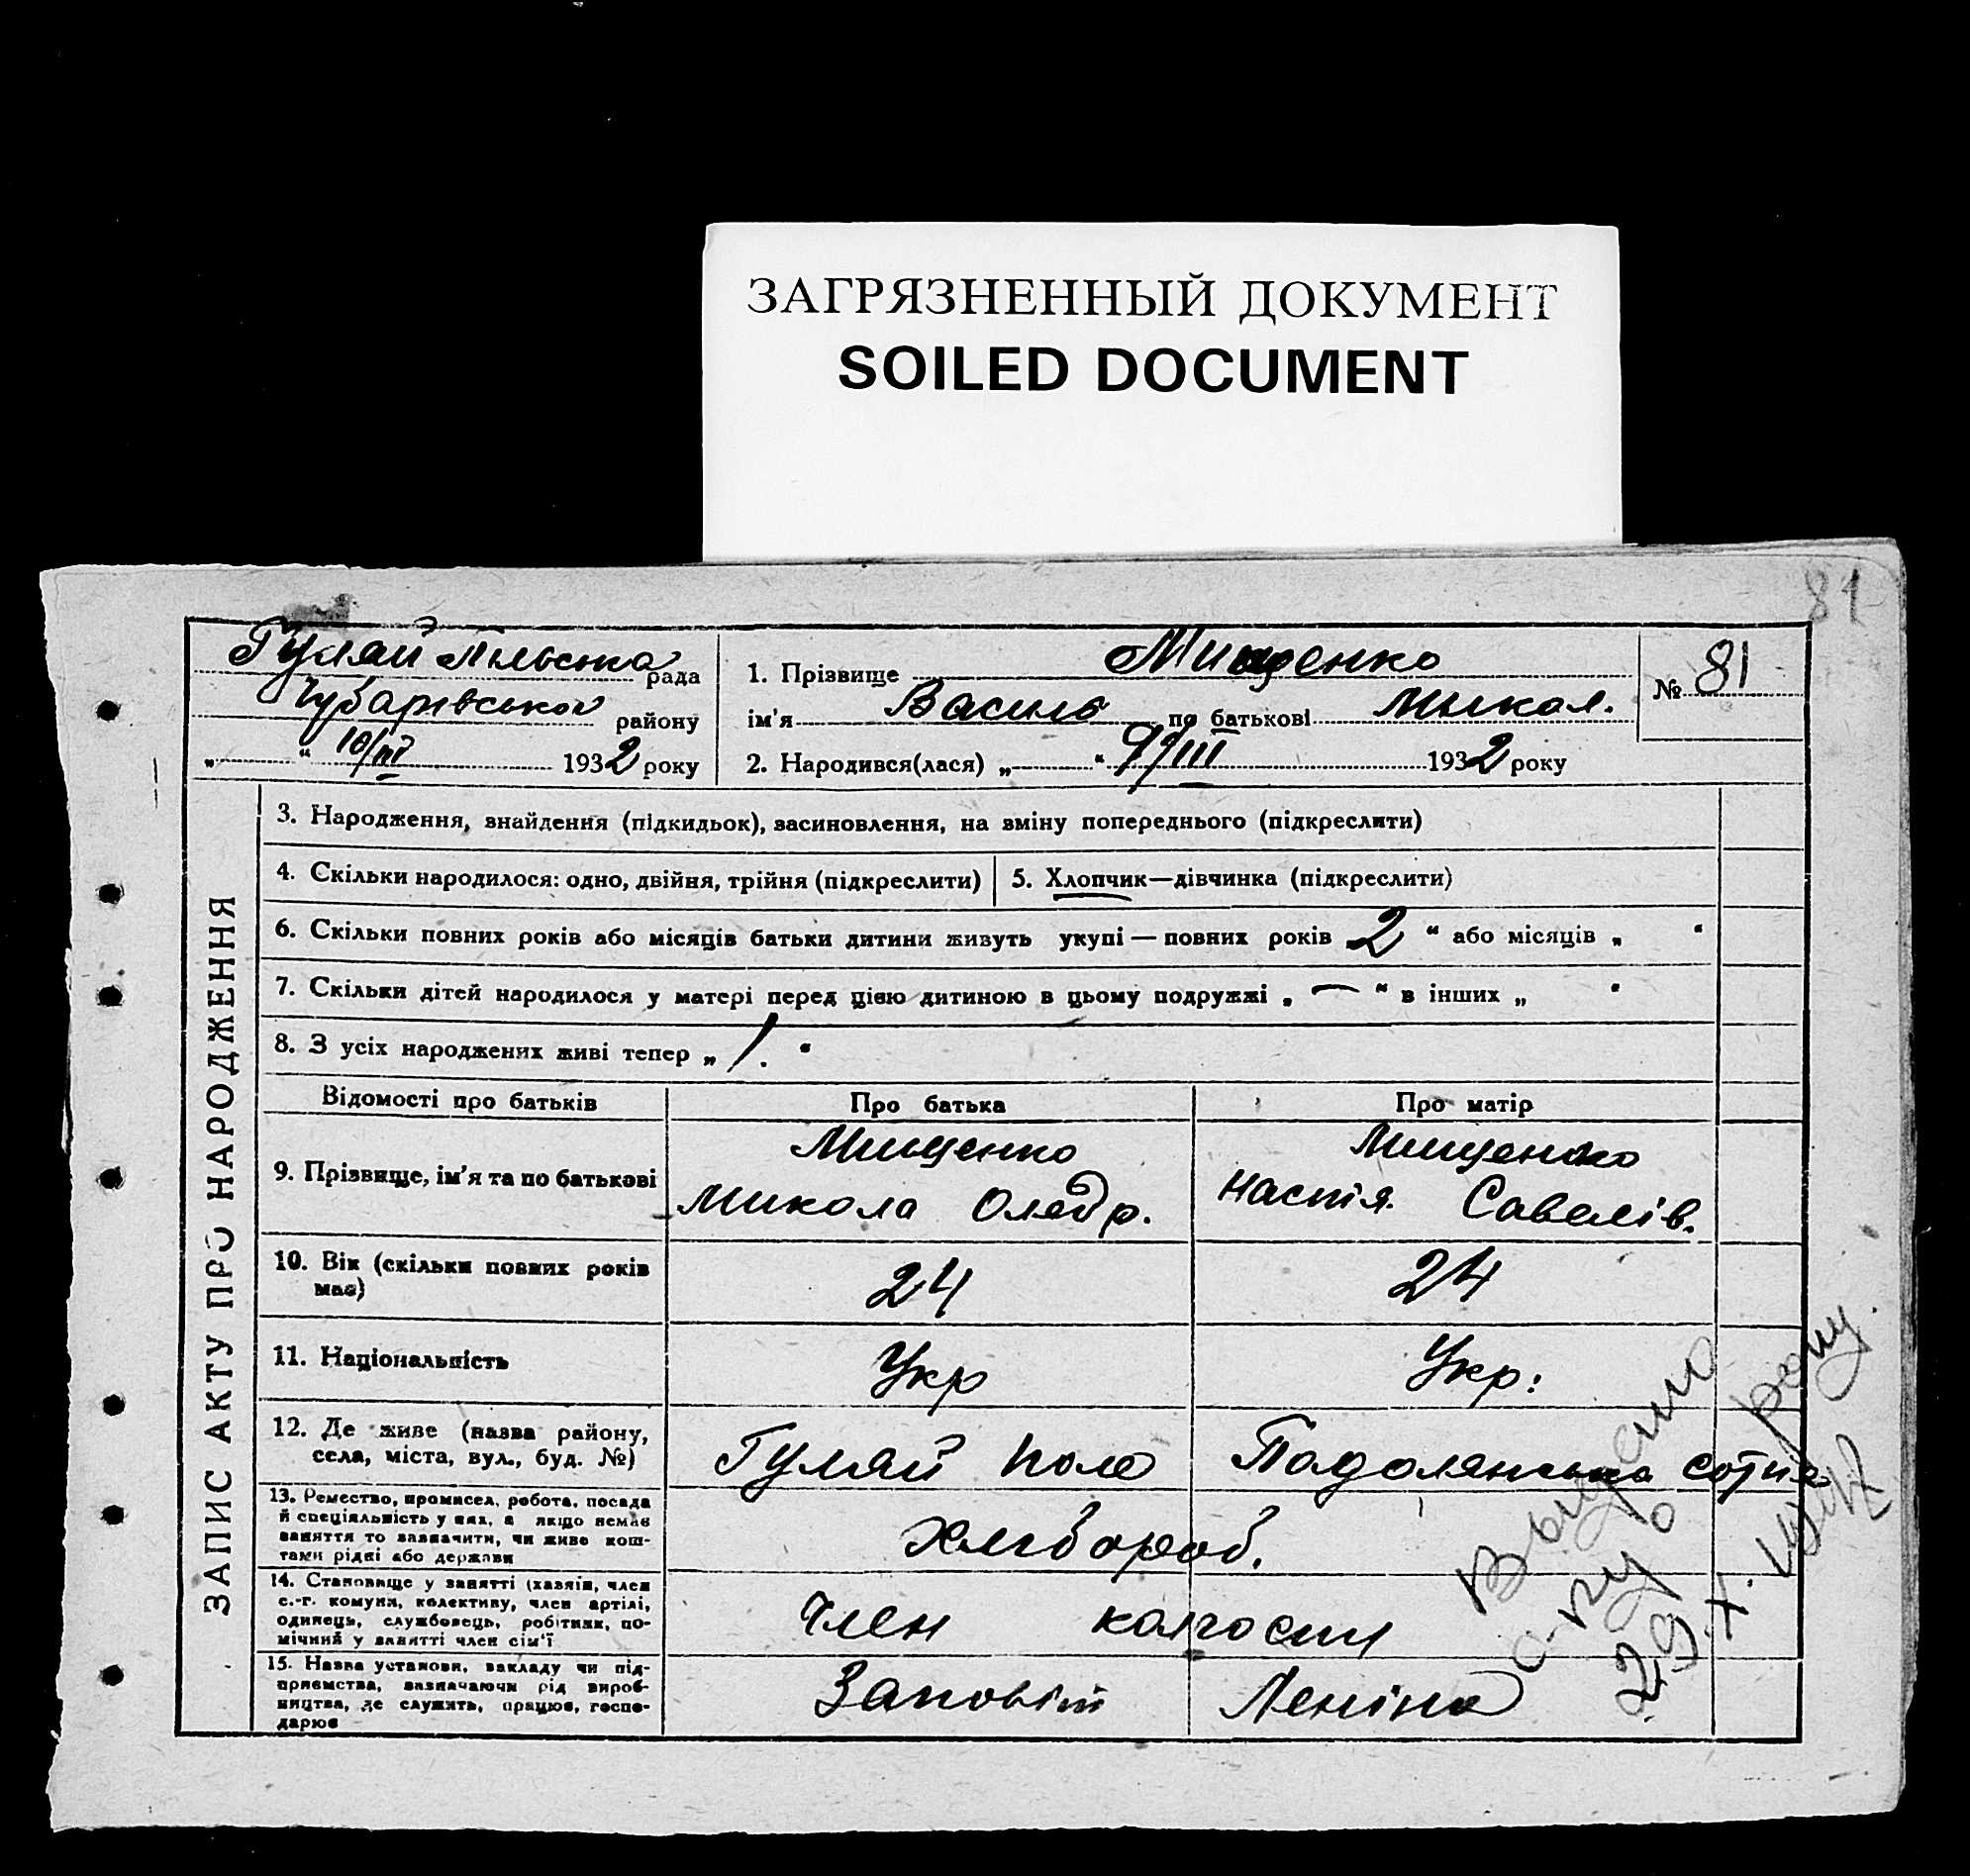 ЗАГРЯЗНЕННЫЙ ДОКУМЕНТ
SOILED DOCUMENT
81
Гуляй Пільська рада
Чубарівської району
„ “ 10/III 1932 року
1. Прізвище Мищенко
ім'я Василь по батькові Микол.
№ 81
2. Народився(лася) „ “ 9/III 1932 року
ЗАПИС АКТУ ПРО НАРОДЖЕННЯ
3. Народження, знайдення (підкидьок), засиновлення, на зміну попереднього (підкреслити)
4. Скільки народилося: одно, двійня, трійня (підкреслити)
5. Хлопчик—дівчинка (підкреслити)
6. Скільки повних років або місяців батьки дитини живуть укупі — повних років 2 “ або місяців „ “
7. Скільки дітей народилося у матері перед цією дитиною в цьому подружжі „ — “ в інших „ “
8. З усіх народжених живі тепер „ 1. “
Відомості про батьків
Про батька
Про матір
9. Прізвище, ім'я та по батькові
Мищенко
Микола
Мищенко
Настя Савелів.
10. Вік (скільки повних років
має)
24
24
11. Національність
Укр
Укр:
12. Де живе (назва району,
села, міста, вул., буд. №)
Гуляй Поле
Подолянська сотня
13. Ремество, промисел, робота, посада
й спеціяльність у них, а якщо немає
заняття то зазначити, чи живе кош-
тами рідні або держави
Хлібороб.
14. Становище у занятті (хазяїн, член
с.-г. комуни, колективу, член артілі,
одинець, службовець, робітник, по-
мічний у занятті член сім'ї
Член колгоспу
15. Назва установи, закладу чи під-
приємства, зазначаючи рід вироб-
ництва, де служить, працює, госпо-
дарює
Заповіт Леніна
29.X.